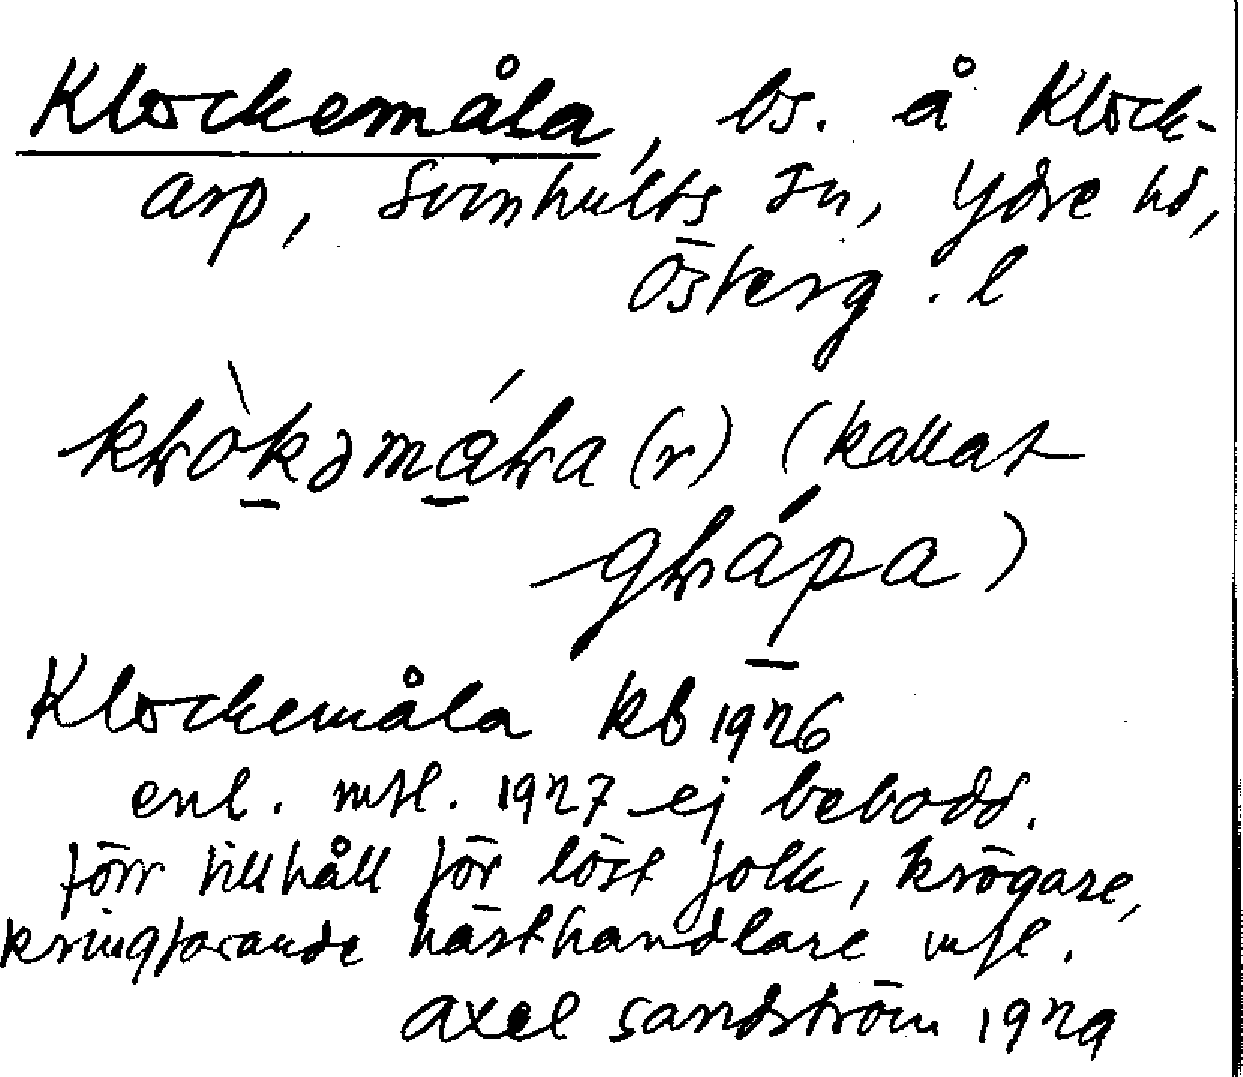 Klockemåla, ls. å Klock-
arp, Svinhults sn, Ydre hd,
Österg. l
(r) (kallat
Klockemåla kb 1926
enl. mtl. 1927 ej bebodd.
förr tillhåll för löst folk, krögare,
kringfarande hästhandlare mfl.
Axel Sandström 1929